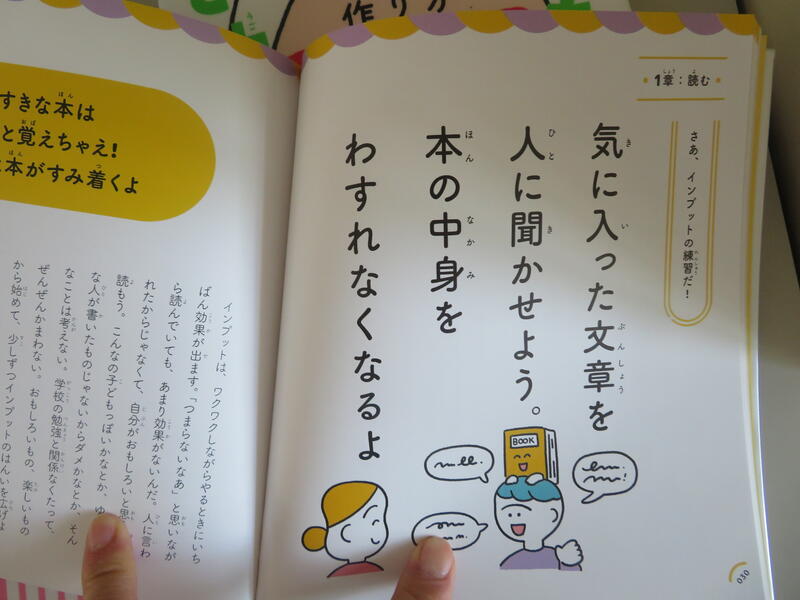 作り
1章：読む
さあ、インプットの練習だ！
気に入った文章を
人に聞かせよう。
本の中身を
わすれなくなるよ
BOOK
030
すきな本は
と覚えちゃえ！
本がすみ着くよ
インプットは、ワクワクしながらやるときにいち
ばん効果が出ます。「つまらないなあ」と思いなが
ら読んでいても、あまり効果がないんだ。人に言わ
れたからじゃなくて、自分がおもしろいと思
読もう。こんなの子どもっぽいかなとか、ゆ
な人が書いたものじゃないからダメかなとか、そん
なことは考えない。学校の勉強と関係なくたって、
ぜんぜんかまわない。おもしろいもの、楽しいもの
から始めて、少しずつインプットのはんいを広げよ